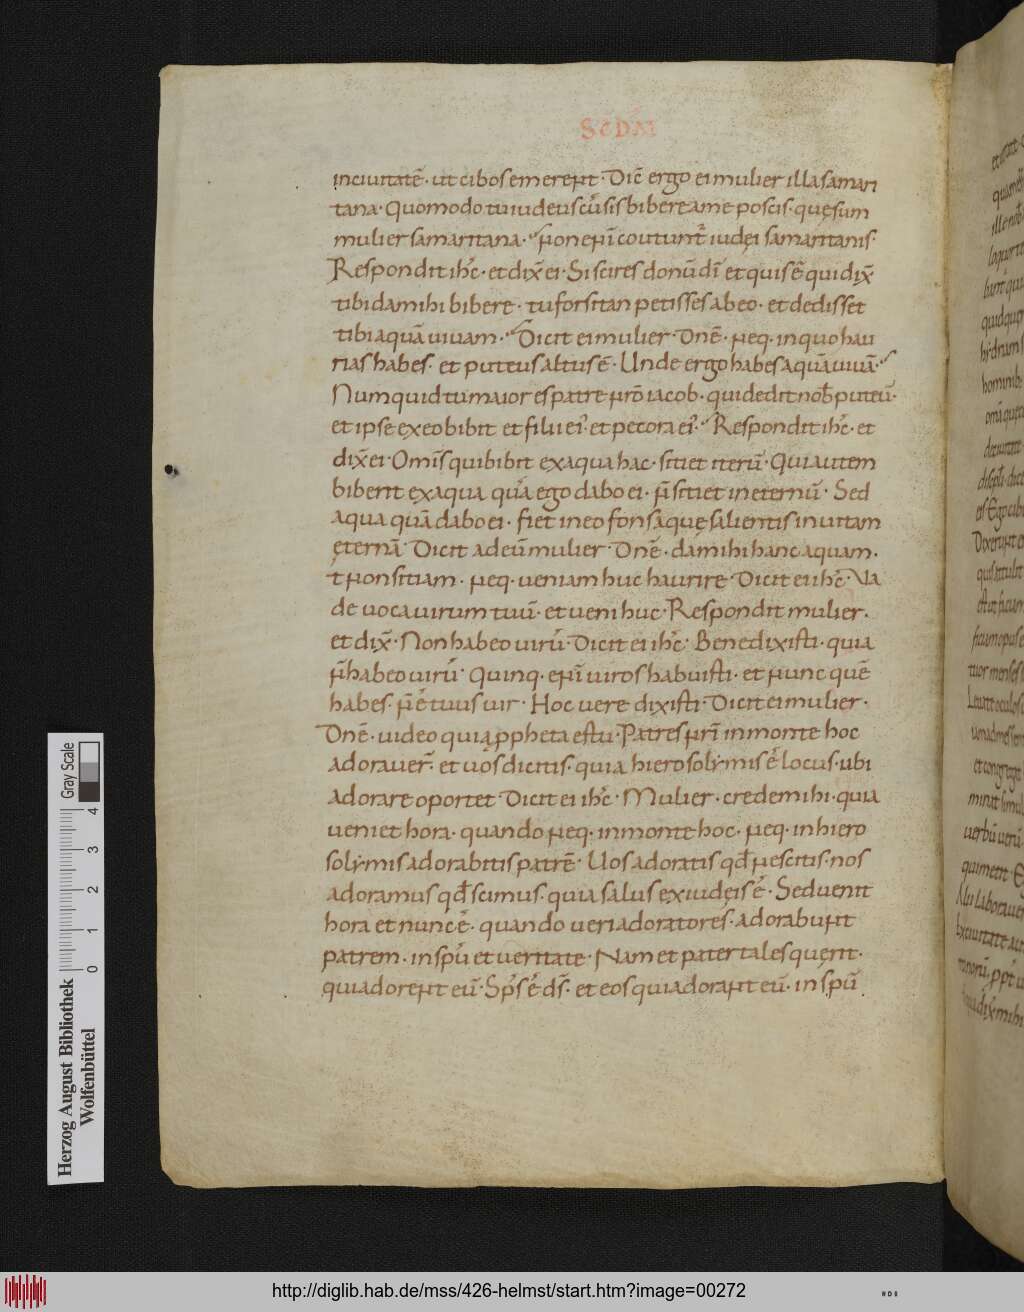 SCDM
inciuitatē · ut cibos emereNt · Dic̄ ergo ei mulier illa samari
tana · Quomodo tu iudeus cū sis bibere a me poscis · quę sum
mulier samaritana · Non eNī coutunt̄ iudęi samaritanis ·
Respondit ih̄c · et dix̄ ei · Si scires donū dī et quis ē qui dix̄
tibi da mihi bibere · tu forsitan petisses ab eo · et dedisset
tibi aquā uiuam · Dicit ei mulier · Dn̄e · Neq · in quo hau
rias habes · et puteus altus ē · Unde ergo habes aquā uiuā ·
Numquid tu maior es patre Nr̄o iacob · qui dedit nob̄ puteū ·
et ipse ex eo bibit et filii ei᾽ · et pecora ei᾽ · Respondit ih̄c · et
dix̄ ei · Omīs qui bibit ex aqua hac · sitiet iterū · Qui autem
biberit ex aqua quā ego dabo ei · N̄ sitiet in eternū · Sed
aqua quā dabo ei · fiet in eo fons aquę salientis in uitam
ęternā · Dicit ad eū mulier · Dn̄e · da mihi hanc aquam ·
t Non sitiam · Neq · ueniam huc haurire · Dicit ei ih̄c · Va
de uoca uirum tuū · et ueni huc · Respondit mulier ·
et dix̄ · Non habeo uirū · Dicit ei ih̄c · Bene dixisti · quia
N̄ habeo uirū · Quinq · eNī uiros habuisti · et Nunc quē
habes · N̄ ē tuus uir · Hoc uere dixisti · Dicit ei mulier ·
Dn̄e · uideo quia ppheta es tu · Patres Nr̄i in monte hoc
adorauer̄ · et uos dicitis · quia hierosolymis ē locus · ubi
adorare oportet · Dicit ei ih̄c · Mulier · crede mihi · quia
ueniet hora · quando Neq · in monte hoc · Neq · in hiero
solymis adorabitis patrē · Uos adoratis qd̄ Nescitis · nos
adoramus qd̄ scimus · quia salus ex iudęis ē · Sed uenit
hora et nunc ē · quando ueri adoratores · adorabuNt
patrem · in spū et ueritate · Nam et pater tales quęrit ·
qui adoreNt eū · Sp̄s ē ds̄ · et eos qui adoraNt eū · in spū
Herzog August Bibliothek
Wolfenbüttel
0 1 2 3 4
Gray Scale
http://diglib.hab.de/mss/426-helmst/start.htm?image=00272